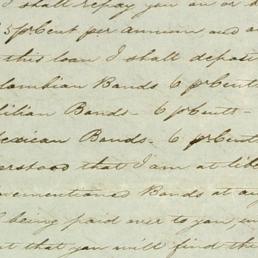 I shall repay you on or b
5 pr Cent per annum and a
this loan I shall deposit
lombian Bonds 6 pr Cents
ilian Bonds - 6 pr Cents -
exican Bonds - 6 pr Cents
erstood that I am at libe
vementioned Bonds at an
being paid over to you, in
t that you will find the